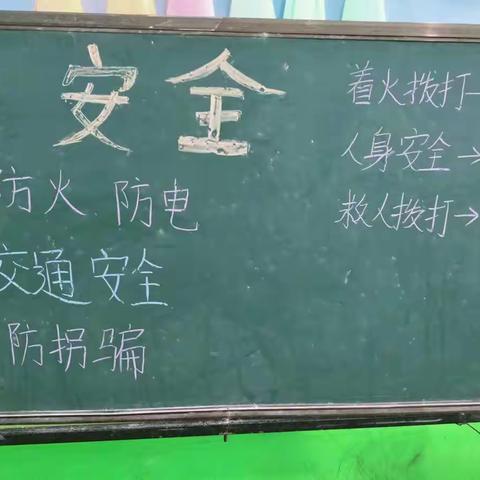 安全
防火 防电
交通安全
防拐骗
着火拨打→
人身安全→
救人拨打→